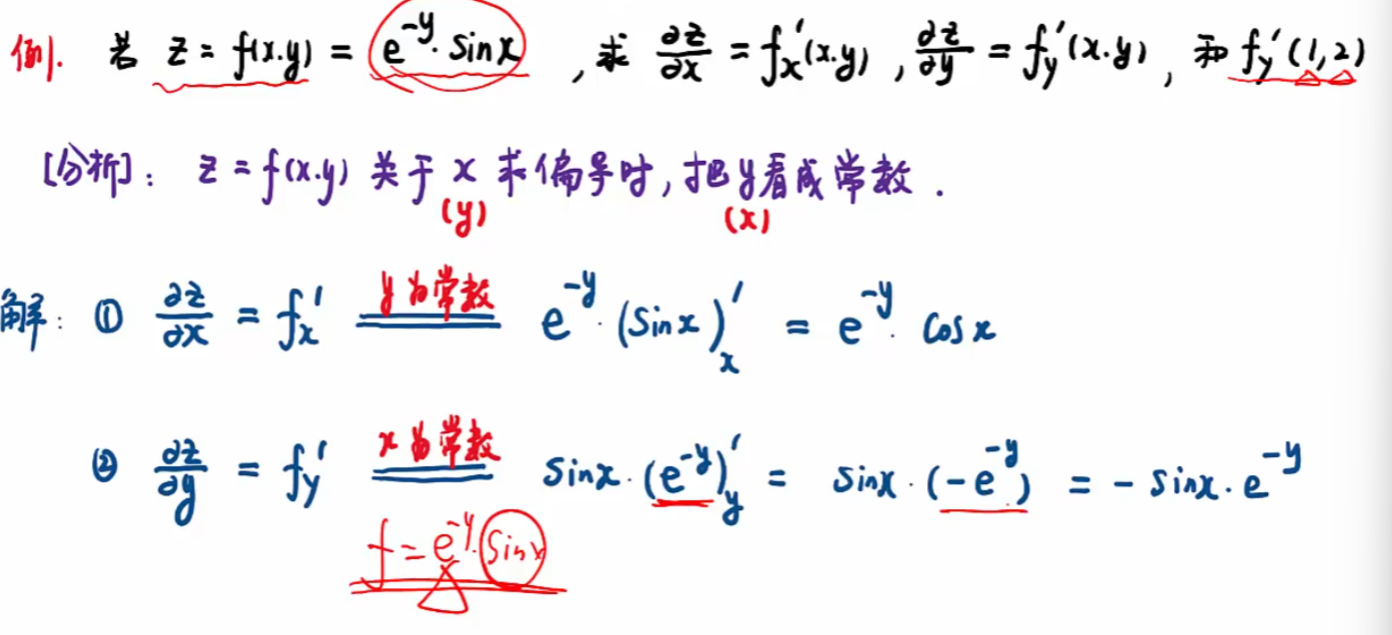 例. 若 z = f(x.y) = e^{-y}· sinx , 求 ∂z/∂x = f_x'(x.y) , ∂z/∂y = f_y'(x.y) , 和 f_y'(1,2)
[分析]: z = f(x.y) 关于 x 求偏导时, 把 y 看成常数 .
(y) (x)
解: ① ∂z/∂x = f_x' y为常数 e^{-y}·(sinx)'_x = e^{-y}· cosx
② ∂z/∂y = f_y' x为常数 sinx·(e^{-y})'_y = sinx·(-e^{-y}) = - sinx·e^{-y}
f = e^{-y}· sinx